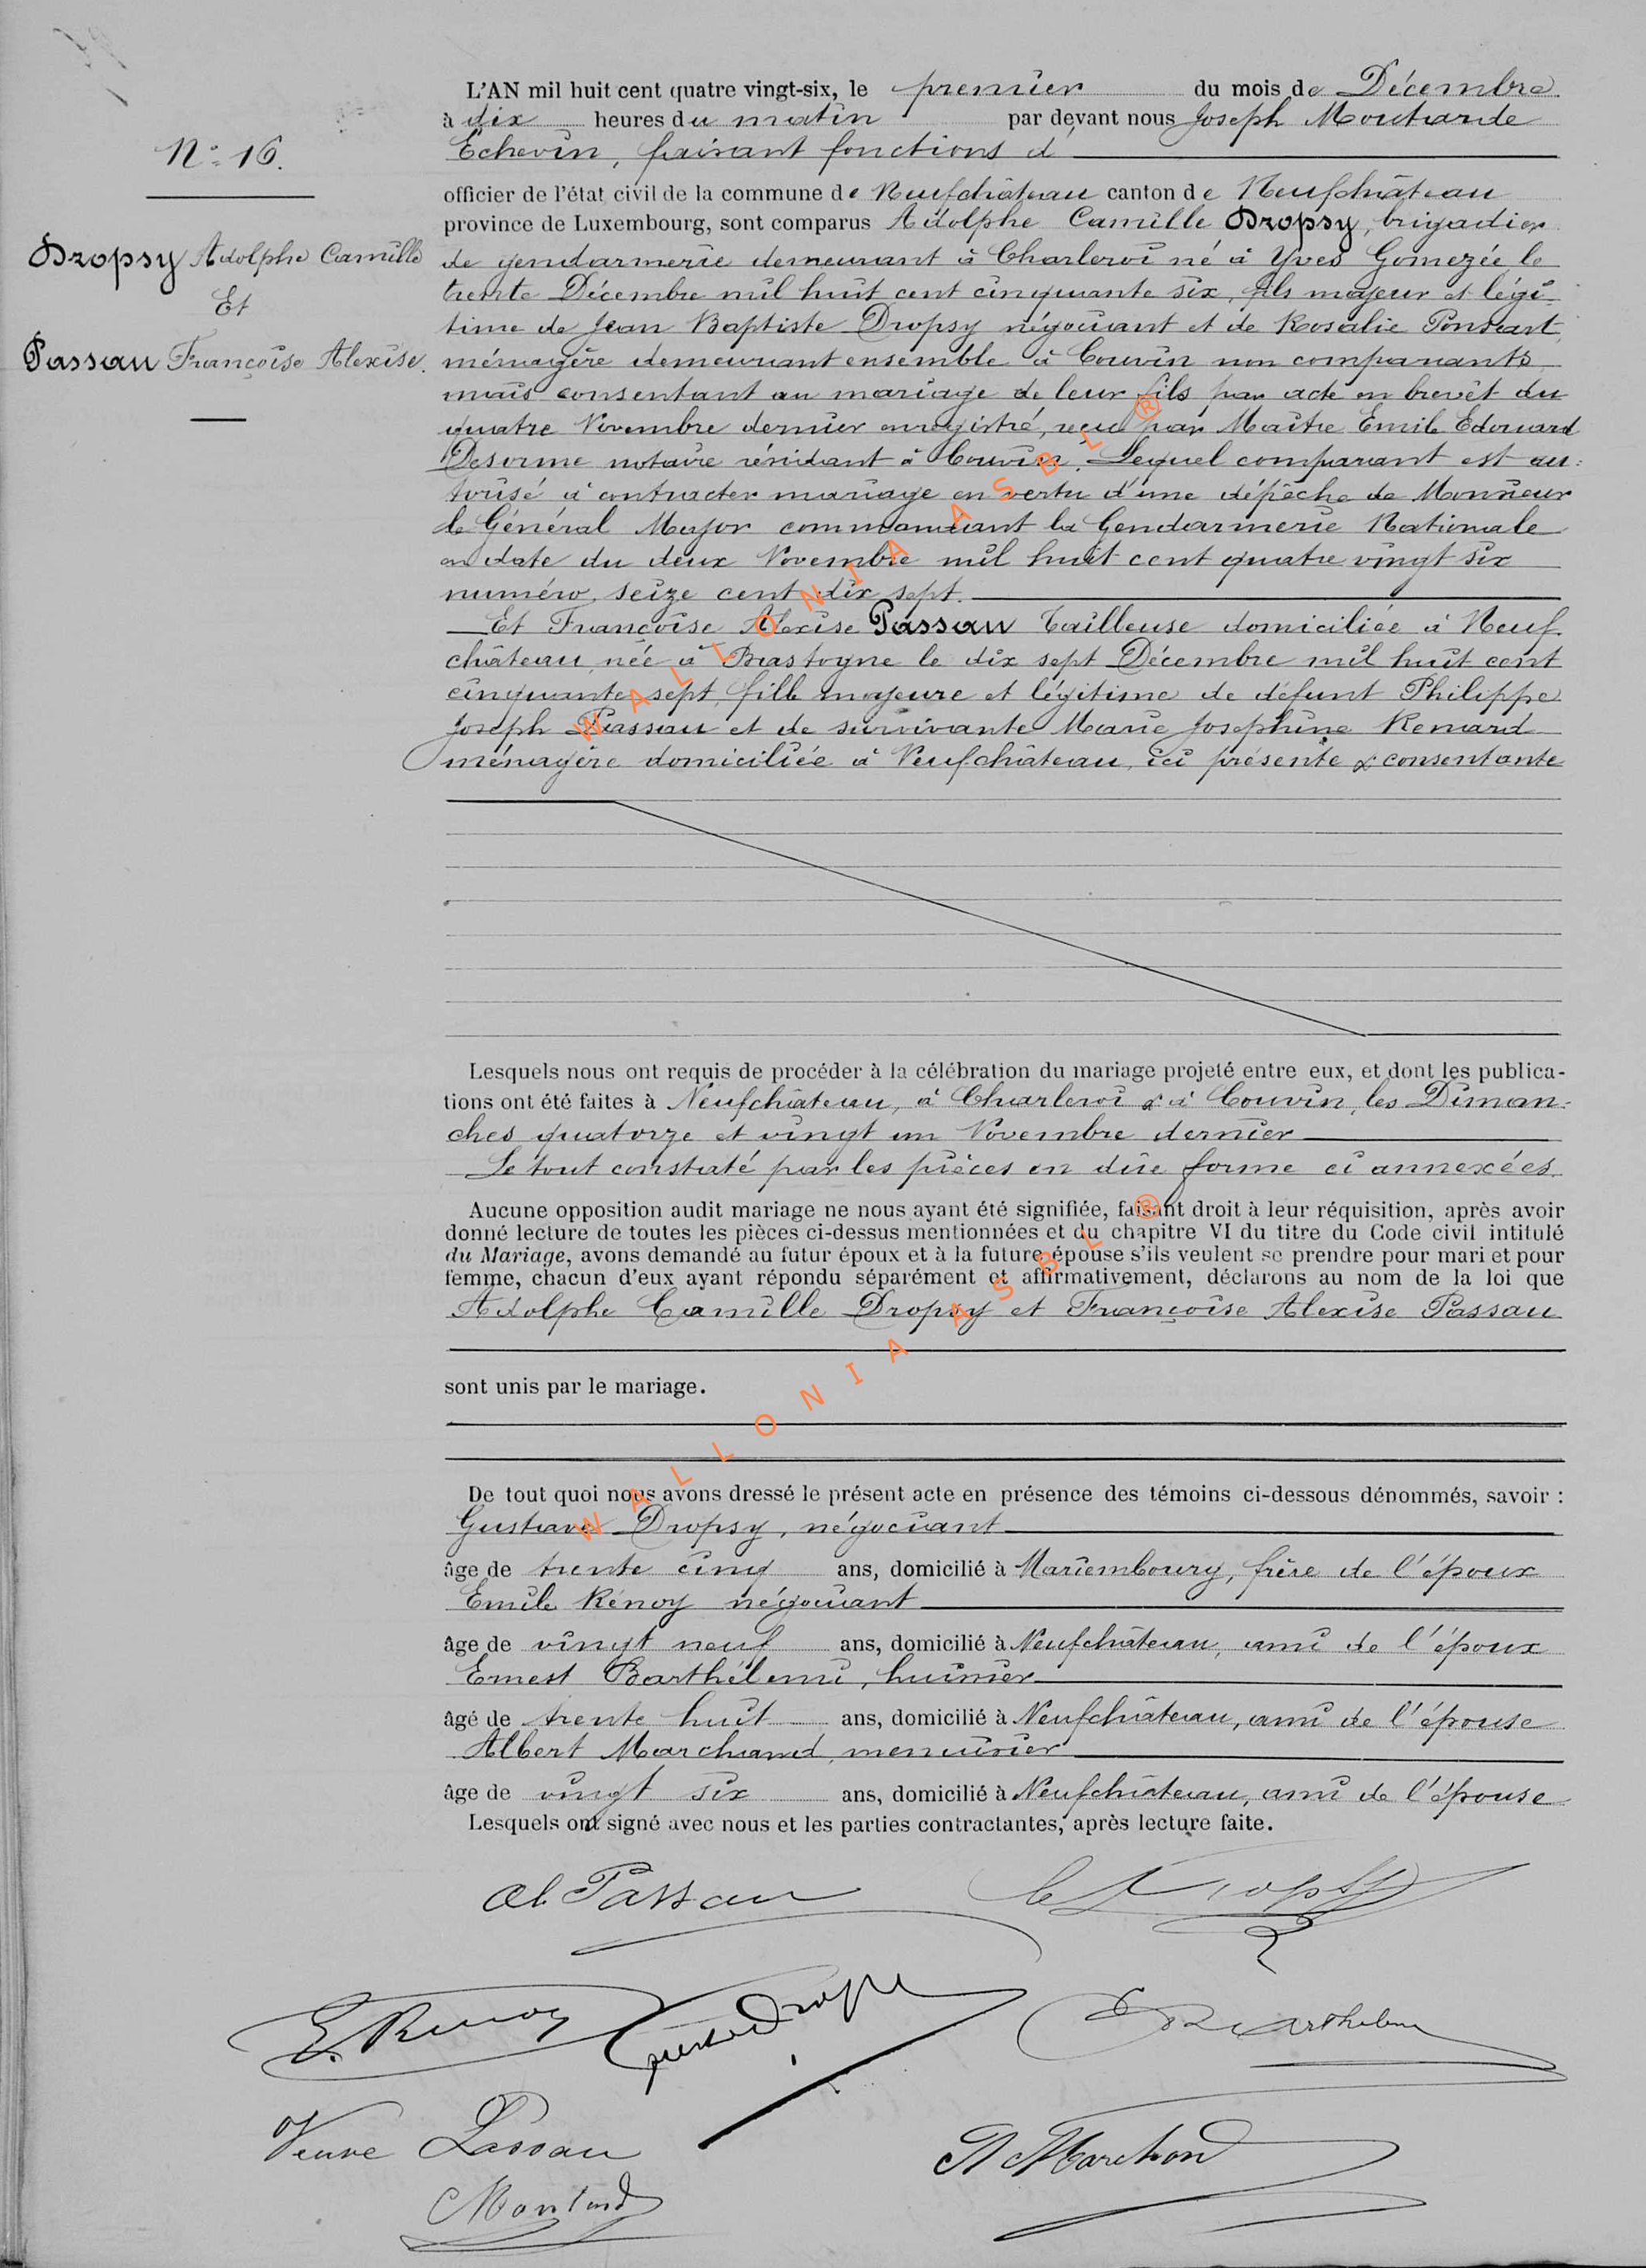 L'AN mil huit cent quatre vingt-six, le premier du mois de Décembre
à dix heures du matin par devant nous Joseph Moutarde
Echevin, faisant fonctions d'
N° 16.
officier de l'état civil de la commune de Neufchâteau canton de Neufchâteau
province de Luxembourg, sont comparus Adolphe Camille Dropsy, brigadier
Dropsy Adolphe Camille
Et
Passau Françoise Alexise.
de gendarmerie demeurant à Charleroi né à Yves Gomezée le
trente Décembre mil huit cent cinquante six, fils majeur et légi-
time de Jean Baptiste Dropsy négociant et de Rosalie Ponsart,
ménagère demeurant ensemble à Couvin non comparants
mais consentant au mariage de leur fils par acte en brevêt du
quatre Novembre dernier enregistré, reçu par Maître Emile Edouard
Desorme notaire résidant à Couvin. Lequel comparant est au:
torisé à contracter mariage en vertu d'une dépêche de Monsieur
le Général Major commandant la Gendarmerie Nationale
en date du deux Novembre mil huit cent quatre vingt six
numéro seize cent dix sept.
Et Françoise Alexise Passau Tailleuse domiciliée à Neuf
château, née à Bastogne le dix sept Décembre mil huit cent
cinquante sept, fille majeure et légitime de défunt Philippe
Joseph Passau et de survivante Marie Josephine Renard
ménagère domiciliée à Neufchâteau, ici présente & consentante
Lesquels nous ont requis de procéder à la célébration du mariage projeté entre eux, et dont les publica-
tions ont été faites à Neufchâteau, à Charleroi & à Couvin, les Diman:
ches quatorze et vingt un Novembre dernier
Le tout constaté par les pièces en dûe forme ci annexées.
Aucune opposition audit mariage ne nous ayant été signifiée, faisant droit à leur réquisition, après avoir
donné lecture de toutes les pièces ci-dessus mentionnées et du chapitre VI du titre du Code civil intitulé
du Mariage, avons demandé au futur époux et à la future épouse s'ils veulent se prendre pour mari et pour
femme, chacun d'eux ayant répondu séparément et affirmativement, déclarons au nom de la loi que
Adolphe Camille Dropsy et Françoise Alexise Passau
sont unis par le mariage.
De tout quoi nous avons dressé le présent acte en présence des témoins ci-dessous dénommés, savoir :
Gustave Dropsy, négociant
âge de trente cinq ans, domicilié à Mariembourg, frère de l'époux
Emile Rénoy négociant
âge de vingt neuf ans, domicilié à Neufchâteau, ami de l'époux
Ernest Barthélemi, huissier
âgé de trente huit ans, domicilié à Neufchâteau, ami de l'épouse
Albert Marchand, menuisier
âge de vingt six ans, domicilié à Neufchâteau, ami de l'épouse
Lesquels ont signé avec nous et les parties contractantes, après lecture faite.
al. Passau
E. Renoy
Veuve Passau
A Marchand
WALLONIA ASBL ®
WALLONIA ASBL ®